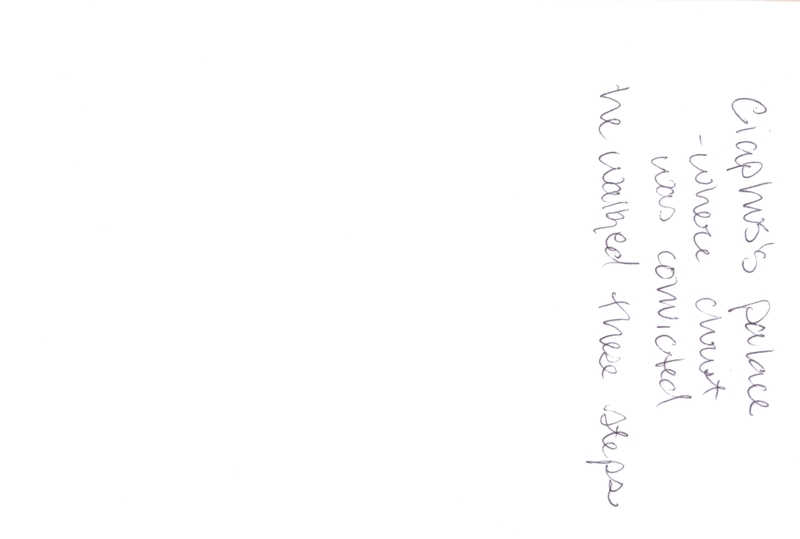 Ciaphus's palace
- where christ
was convicted
he walked these steps